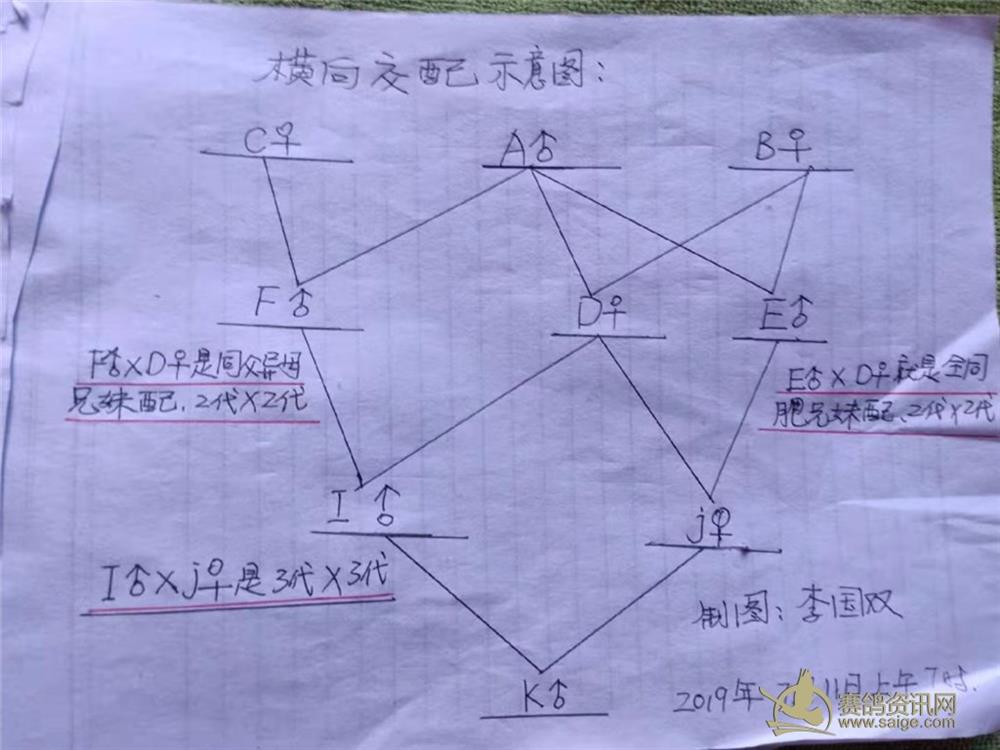 横向交配示意图:
C♀
A♂
B♀
F♂
D♀
E♂
F♂×D♀是同父异母
兄妹配.2代×2代
E♂×D♀就是全同
胞兄妹配.2代×2代
I♂
j♀
I♂×j♀是3代×3代
制图:李国双
K♂
2019年 11日上午7时.
赛鸽资讯网
www.saige.com